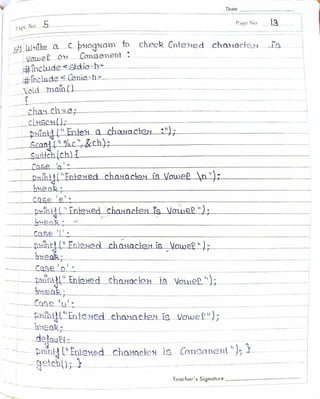 Date
Expt. No. 5
Page No. 13
Write a C program to check Entered character is
Vowel or Consonent :
#include <stdio.h>
#include <conio.h>
Void main()
{
char ch=0;
clrscr();
printf("Enter a character :");
Scanf("%c",&ch);
Switch(ch) {
Case 'a':
printf("Entered character is Vowel \n");
break;
case 'e':
printf("Entered character is Vowel");
break;
Case 'i':
printf("Entered character is Vowel");
break;
Case 'o':
printf("Entered character is Vowel");
break;
Case 'u':
printf("Entered character is Vowel");
break;
default:
printf("Entered character is Consonent"); }
getch(); }
Teacher's Signature